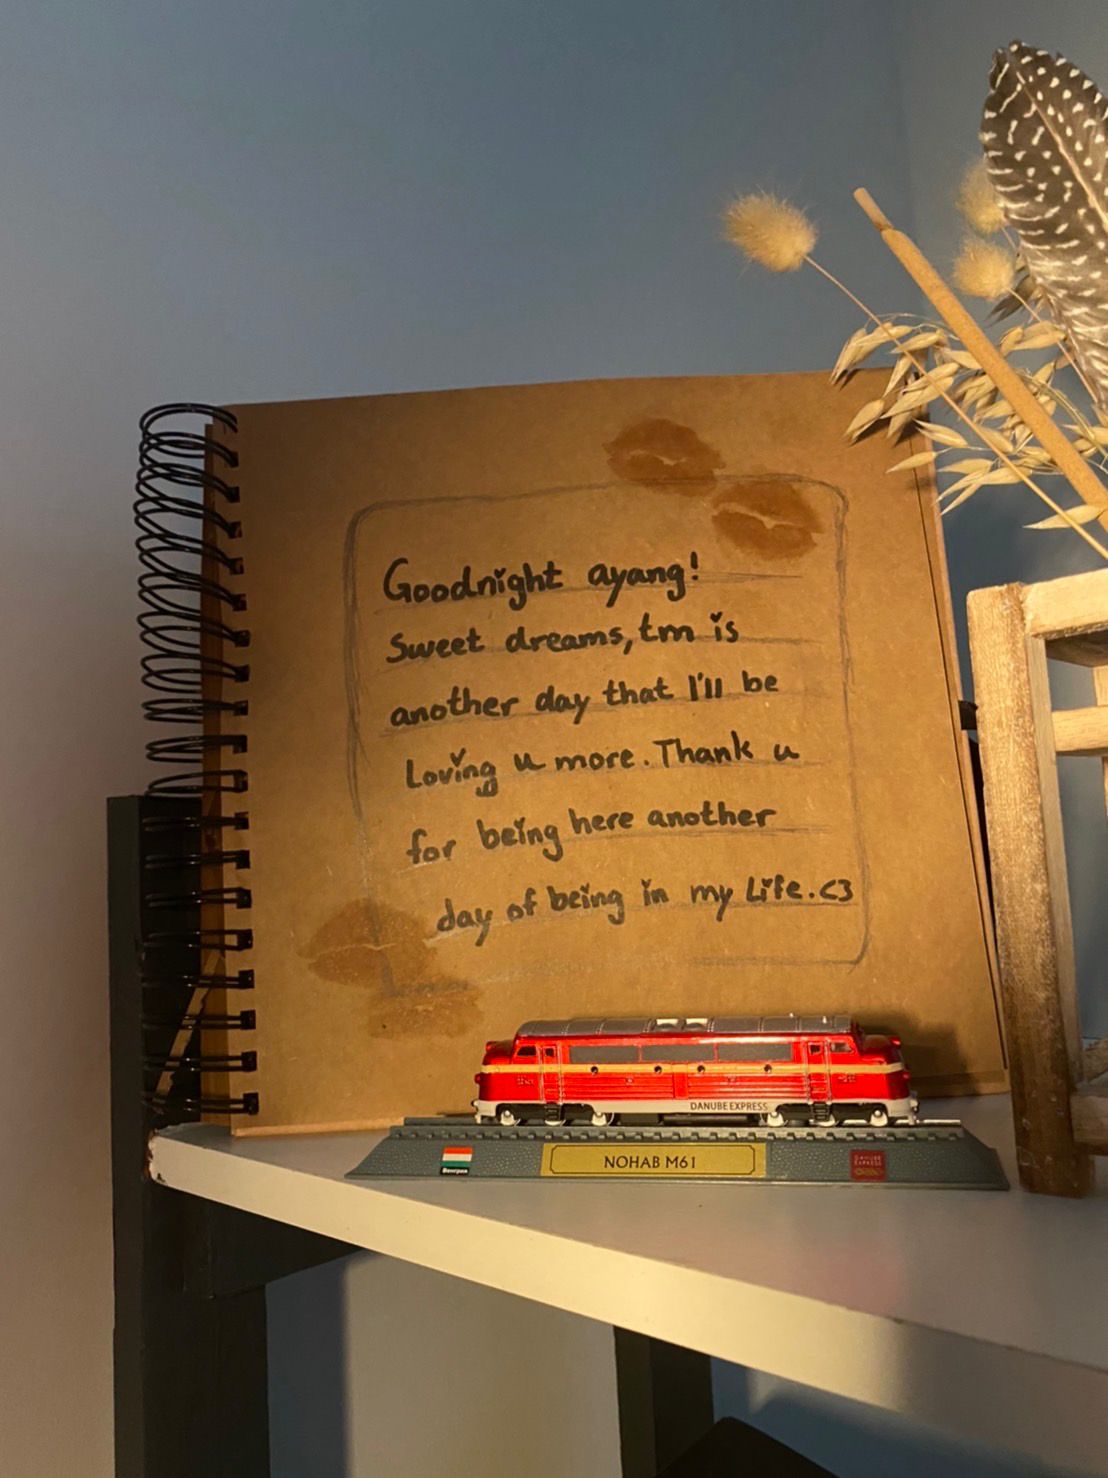 Goodnight ayang!
Sweet dreams, tm is
another day that I'll be
Loving u more. Thank u
for being here another
day of being in my Life. <3
DANUBE EXPRESS
NOHAB M61
DANUBE
EXPRESS